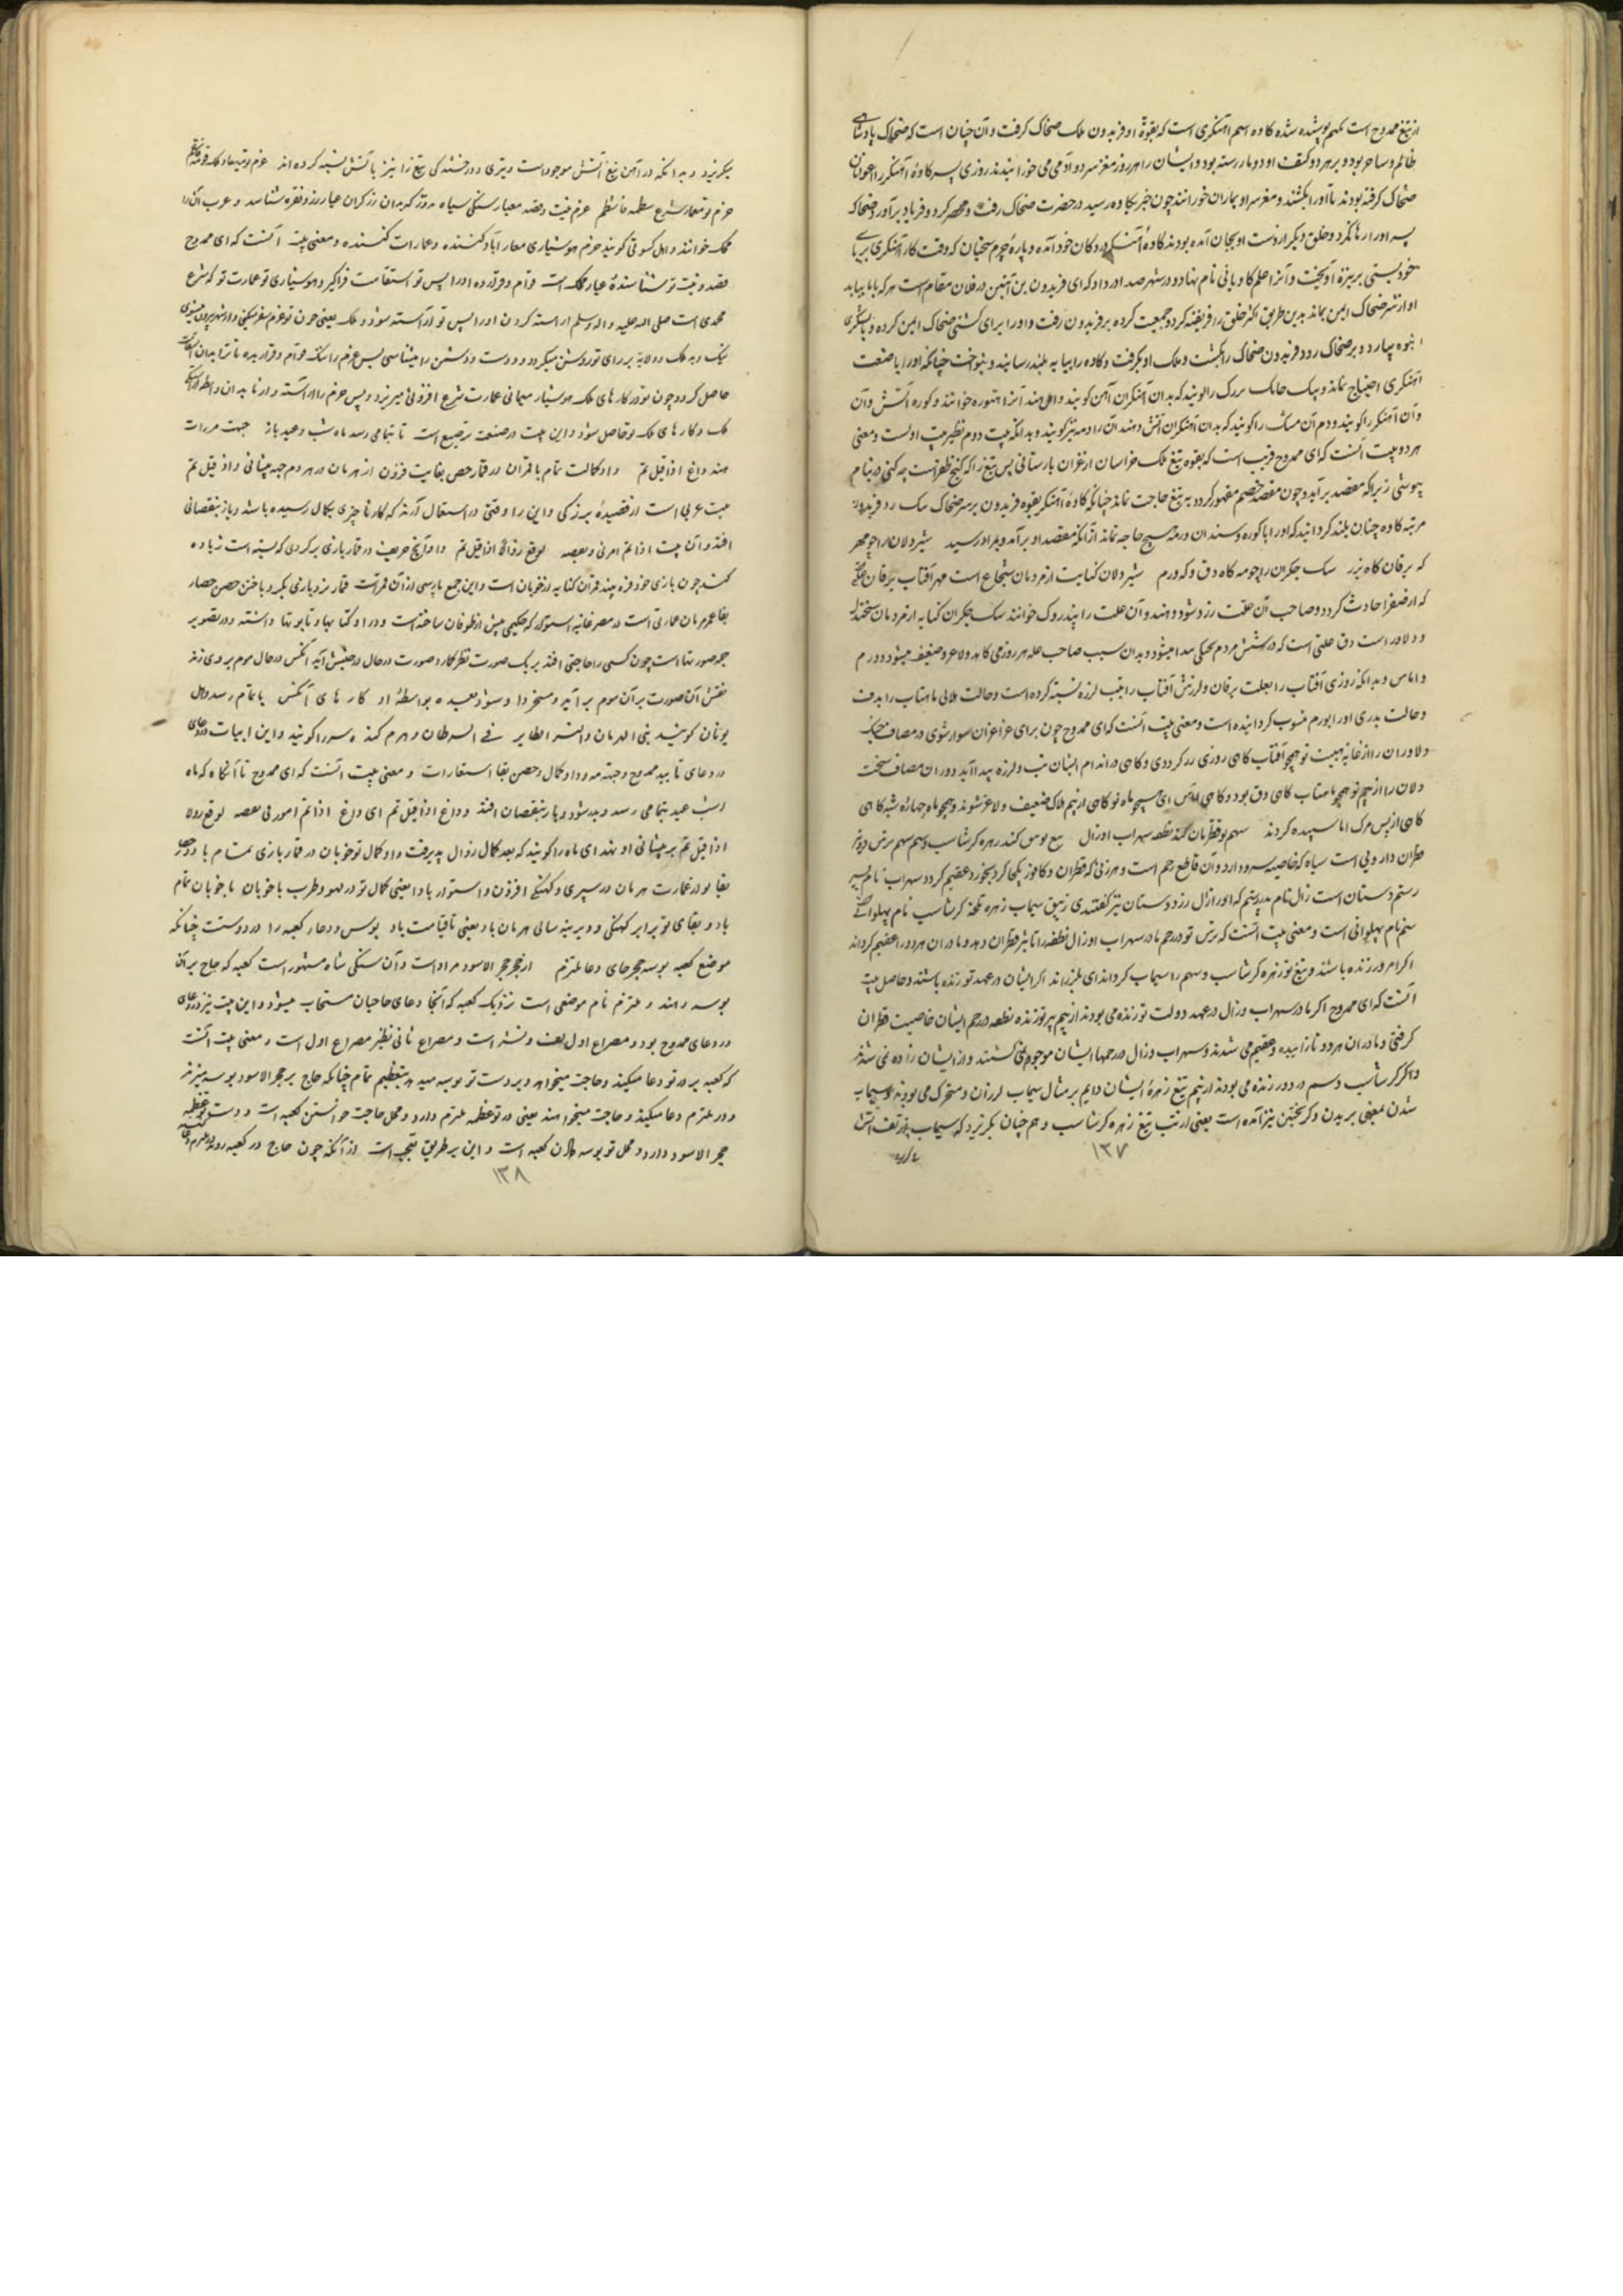 از تیغ ممدوح است بهم پوشیده شده کاوه اسم آهنگری است که بقوة او فریدون ملک ضحاک گرفت و آن چنان است که ضحاک پادشاهی
ظالم و ساحر بود و بر هر دو کتف او دو مار رسته بود و ایشان را هر روز مغز سر دو آدمی می خورانیدند روزی پسر کاوهٔ آهنگر را اعوانان
ضحاک گرفته بودند تا او را بکشند و مغز سر او بماران خورانند چون خبر بکاوه رسید در حضرت ضحاک رفت و محضر کرد و فریاد برآورد ضحاک
پسر او را رها کرد و خلق دیگر از دست او بجان آمده بودند کاوهٔ آهنگر در دکان خود آمده و پارهٔ چرم سختیان که وقت کار آهنگری بر پای
خود بستی بر نیزه آویخت و آنرا علم کاویانی نام نهاد و در شهر صدا در داد که ای فریدون بن آبتین در فلان مقام است هر که با ما بیاید
او از شر ضحاک ایمن بماند بدین طریق اکثر خلق را فریفته کرد و جمعیت کرده بر فریدون رفت و او را برای کشتن ضحاک ایمن کرده و با لشکری
انبوه بیاورد و بر ضحاک زود فریدون ضحاک را بکشت و ملک او بگرفت و کاوه را بپایه بلند رسانید و بنواخت چنانکه او را با صنعت
آهنگری احتیاج نماند و پتک خایسک بزرگ را گویند که بدان آهنگران آهن کوبند و اهل هند آنرا هتوره خوانند و کوره آتش دان
و آن آهنگر را گویند و دم آن مشک را گویند که بدان آهنگران آتش دمند آن را دمه نیز گویند و بدانکه بیت دوم نظیر بیت اولست و معنی
هر دو بیت آنست که ای ممدوح قریب است که بقوه تیغ ملک خراسان از غزان بازستانی پس تیغ را که گنج ظفر است چه کنی در نیام
پوشی زیرا که مقصد برآید و چون مقصد خصم مقهور گردد به تیغ حاجت نماند چنانکه کاوهٔ آهنگر بقوه فریدون بر سر ضحاک سبک زد فریدون
مرتبه کاوه چنان بلند گردانید که او را با کوره و سندان و دمه هیچ حاجه نماند از آنکه مقصد او برآمد و بمراد رسید شیر دلان را چو مهر
که یرقان گاه بزر سگ جگران را چو مه گاه دق و گه ورم شیر دلان کنایت از مردمان شجاع است مهر آفتاب یرقان علتی
که از صفرا حادث گردد و صاحب آن علت زرد شود و هند و آن علت را پندروک خوانند سگ جگران کنایه از مردمان سخت دل
و دلاور است دق علتی است که در شش مردم خشکی پیدا میشود و بدان سبب صاحب عله هر روز می کاهد و لاغر و ضعیف میشود و ورم
و اماس و بدانکه زردی آفتاب را بعلت یرقان و لرزش آفتاب را بتب لرزه نسبه کرده است و حالت هلالی ماهتاب را بدق
و حالت بدری او را بورم منسوب گردانیده است و معنی بیت آنست که ای ممدوح چون برای غزا غزان سوار شوی در مصاف جنگ
دلاوران را از غایة هیبت تو همچو آفتاب گاهی روزی زرد کردی و گاهی در اندام ایشان تب و لرزه پیدا آید و در آن مصاف سخت
دلان را از بیم تو همچو ماهتاب گاهی دق بود و گاهی اماس ای همچو ماه نو گاهی از بیم هلاک ضعیف و لاغر شوند و همچو ماه چهارده شبه گاهی
گاهی از پس مرگ اماسیده گردند سهم تو قطران کند نطفه سهراب او زال تیغ تو مس کند زهره گرشاسب و سم سهم ترس و بیم
قطران دارویی است سیاه که خاصیه سرد دارد و آن قاطع رحم است و هر زنی که قطران و کافور یکجا کرده بخورد عقیم گردد سهراب نام پسر
رستم دستان است زال نام پدر رستم که او را زال زر و دستان نیز گفتندی زیبق سیماب زهره تلخه گرشاسب نام پهلوانی
سم نام پهلوانی است و معنی بیت آنست که ترس تو در رحم مادر سهراب او زال نطفه را تاثیر قطران دهد و مادران هر دو را عقیم گرداند
اگر امروز زنده باشند و تیغ تو زهره گرشاسب و سهم را سیماب گرداند ای بلرزاند اگر ایشان در عهد تو زنده باشند و حاصل بیت
آنست که ای ممدوح اگر مادر سهراب و زال در عهد دولت تو زنده می بودند از بیم تو زنده نطفه در رحم ایشان خاصیت قطران
گرفتی و مادران هر دو نازاییده و عقیم می شدند و سهراب و زال در رحمها ایشان موجود نمی گشتند و از ایشان زاده نمی شدند
و اگر گرشاسب و سم در دور زنده می بودند از بیم تیغ زهرهٔ ایشان دایم بر مثال سیماب لرزان و متحرک می بودند و سیماب
شدن بمعنی بریدن و گریختن نیز آمده است یعنی از تب تیغ زهره گرشاسب و هم چنان بگریزد که سیماب از تف آتش
۱۳۷
میگریزد و بدانکه در آهن تیغ آتش موجود است و تیزی و درخشندگی تیغ را نیز بآتش نسبه کرده اند عزم تو
حزم تو معمار شرع عزم نیت و قصد معیار سنگی سیاه بود که بدان زرگران عیار زر و نقره شناسند و عرب آن را
محک خوانند و اهل کسوتی گویند حزم هوشیاری معمار آباد کننده و عمارات کننده و معنی بیت آنست که ای ممدوح
قصد و نیت تو شناسندهٔ عیار ملک است قوام و قرار ده او را پس تو استقامت فراگیر و هوشیاری تو عمارت تو که شرع
محمدی است صلی الله علیه و اله وسلم اراسته کردن او را پس تو آراسته شود و ملک یعنی چون تو عزم سفر میکنی و از شهر بیرون میشوی
نیک و بد ملک و ولایة بر رای تو روشن میگردد و دوست و دشمن را میشناسی پس عزم را سنگ قوام و قرار بده تا ترا بدان
حاصل گردد و چون تو در کارهای ملک هوشیار میمانی عمارت شرع افزونی میپذیرد و پس حزم را آراسته دار تا بدان
ملک و کارهای ملک تو حاصل شود و این بیت در صنعت ترصیع است تا بتمامی رسد ماه شب عید باز جبهت
مه داغ اذا قیل تم داد کمالت تمام با قران در قمار حصن بقایت فزون از هرمان در هرم جبه پیشانی و اذ قیل تم
بیت عربی است از قصیدهٔ بزرگی و این را وقتی در استعمال آرند که کار تا چیزی بکمال رسیده باشد و باز بنقصانی
افتد و آن بیت اذا تم امر دنی نقصه توقع زوالا اذا قیل تم داد آنچ حریف در قمار بازی بر گردی که بسته است زیاده
کند چون بازی خود فره بیند قران کنایه از خوبان است و این جمع پارسی از آن قمر است قمار نرد بازی بگرد و باختن حصن حصار
بقا عمر هرمان عمارتی است در مصر بغایة استوار که حکیمی پیش از طوفان ساخته است و در او کتابها و تابوتها داشته و در تصویر
جمه صورتها است چون کسی را حاجتی افتد بر یک صورت نظر گمارد و صورت در حال در جنبش آید آنکس در حال موم بر وی زند
نقش آن صورت بر آن موم برآید و مسخر دار او شود بعده بواسطهٔ او کارهای آنکس باتمام رسد و اهل
یونان گویند بنی الهرمان و النسر الطایر فی السرطان و هرم گنده سر را گویند و این ابیات
در دعای تابید ممدوح و جبهه مه و داد کمال و حصن بقا استعارات و معنی بیت آنست که ای ممدوح تا آنگاه که ماه
از شب عید بتمامی رسد و بدر شود و باز بنقصان افتد و داغ اذا قیل تم ای داغ اذا تم امر دنی نقصه توقع زوالا
اذا قیل تم بر پیشانی او بهند ای ماه را گویند که بعد کمال زوال پذیرفت داد کمال تو خوبان در قمار بازی تمام باد و حصار
بقا تو در عمارت هرمان در سیری و کهنگی افزون و استوار باد ایعنی کمال تو در لهو و طرب با خوبان ماخوبان تمام
باد و بقای تو برابر کهنگی و دیرینه سالی هرمان باد یعنی تا قیامت باد بوس و دعا کعبه را در دوست چنانکه
موضع کعبه بوسه حجر جای دعا ملتزم از حجر حجر الاسود مراد است و آن سنگی سیاه مشهور است کعبه که حاج بر آن
بوسه دهند و ملتزم نام موضعی است نزدیک کعبه که آنجا دعای حاجیان مستجاب میشود و این بیت نیز
در دعای ممدوح بود و مصراع اول لف و نشر است و مصراع ثانی نظیر مصراع اول است و معنی بیت آنست
که کعبه بر در تو دعا میکند و حاجت میخواهد و بر دست تو بوسه میدهد بتعظیم تمام چنانکه حاج بر حجر الاسود بوسه میزنند
و در ملتزم دعا میکنند و حاجت میخواهند یعنی در تو عظمه ملتزم دارد و محل حاجت خواستن کعبه است و دست تو عظمه
حجر الاسود دارد و محل تو بوسه دادن کعبه است و این بر طریق تعجب است از آنکه چون حاج در کعبه روند
۱۳۸